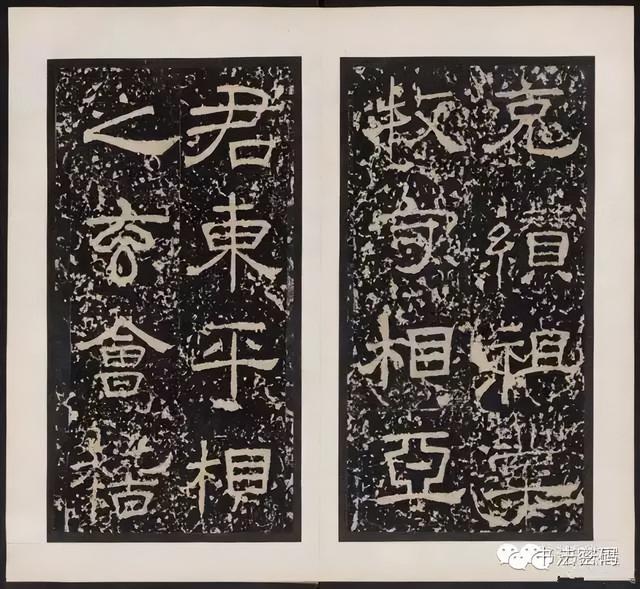 克纘祖業
牧守相亞
君東平相
之玄會稽
书法密码